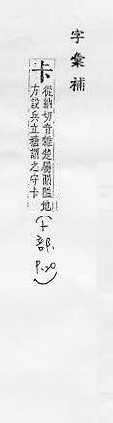 字彙補
卡
從納切音雜楚屬關隘地
方設兵立塘謂之守卡
(卜部
P.20)